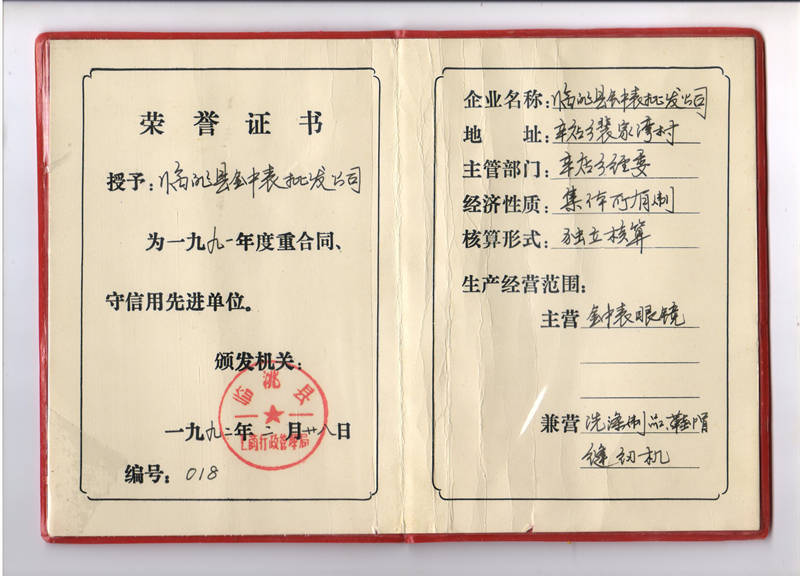 荣誉证书
授予：临洮县钟表批发公司
为一九九一年度重合同、
守信用先进单位。
颁发机关：
临洮县
工商行政管理局
一九九二年二月廿八日
编号：018
企业名称：临洮县钟表批发公司
地址：辛店乡裴家湾村
主管部门：辛店乡经委
经济性质：集体所有制
核算形式：独立核算
生产经营范围：
主营 钟表眼镜
兼营 洗涤制品鞋帽
缝纫机